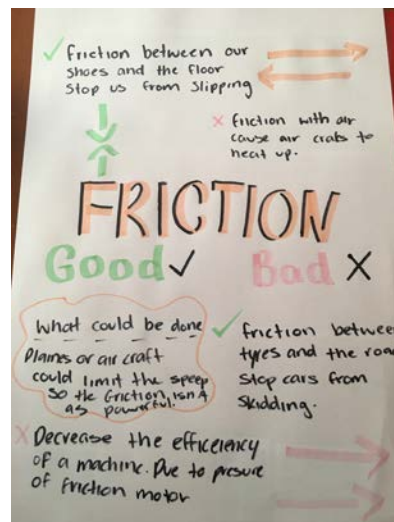 ✓ friction between our
shoes and the floor
stop us from slipping
× friction with air
cause air crats to
heat up.
FRICTION
Good ✓ Bad ×
What could be done
Plaines or air craft
could limit the speep
so the friction, isnt
as powerful.
✓ friction betwee
tyres and the roa
stop cars from
skidding.
× Decrease the efficeiency
of a machine. Due to presure
of friction motor